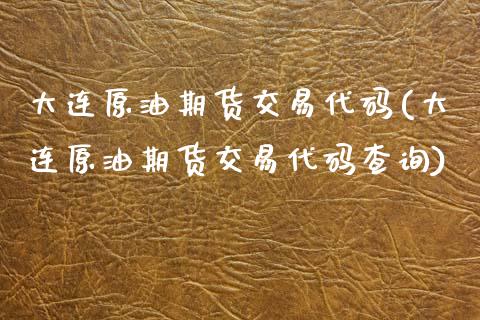 大连原油期货交易代码(大
连原油期货交易代码查询)